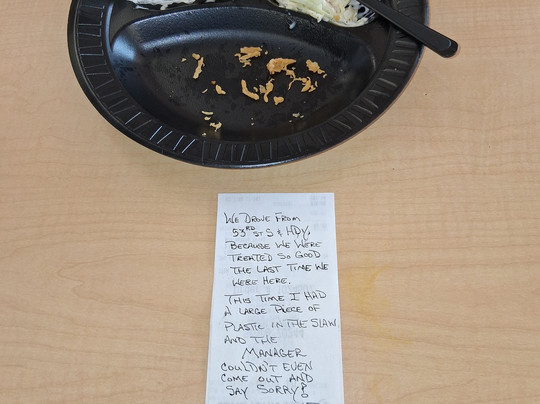 We Drove From
53RD ST S & HDY,
Because We Were
Treated So Good
The Last Time We
Were Here.
This Time I Had
A Large Piece of
Plastic in the Slaw,
And The
Manager
Couldn't Even
Come Out And
Say Sorry!